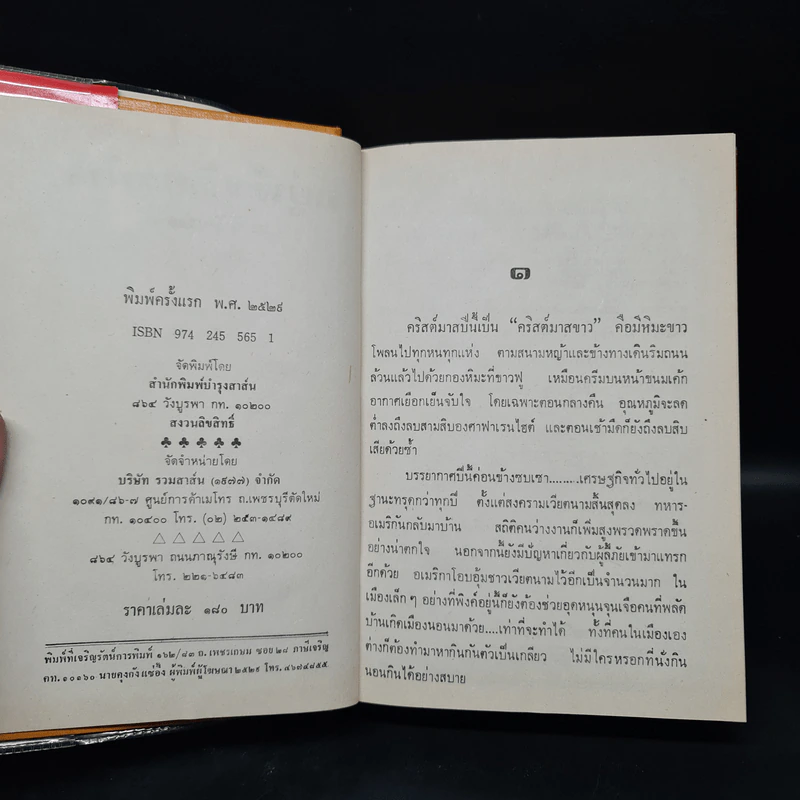 พิมพ์ครั้งแรก พ.ศ. ๒๕๒๙
ISBN 974 245 565 1
จัดพิมพ์โดย
สำนักพิมพ์บำรุงสาส์น
๘๖๔ วังบูรพา กท. ๑๐๒๐๐
สงวนลิขสิทธิ์
จัดจำหน่ายโดย
บริษัท รวมสาส์น (๑๙๗๗) จำกัด
๑๐๙๑/๘๖-๗ ศูนย์การค้าเมโทร ถ.เพชรบุรีตัดใหม่
กท. ๑๐๔๐๐ โทร. (๐๒) ๒๕๓-๑๔๘๙
๘๖๔ วังบูรพา ถนนภาณุรังษี กท. ๑๐๒๐๐
โทร. ๒๒๑-๖๔๘๓
ราคาเล่มละ ๑๘๐ บาท
พิมพ์ที่เจริญรัตน์การพิมพ์ ๑๖๒/๘๓ ถ.เพชรเกษม ซอย ๒๘ ภาษีเจริญ
กท. ๑๐๑๖๐ นายคุงกัง แซ่อึ้ง ผู้พิมพ์ผู้โฆษณา ๒๕๒๙ โทร. ๔๖๗๔๘๕๕
๑
คริสต์มาสปีนี้เป็น “คริสต์มาสขาว” คือมีหิมะขาว
โพลนไปทุกหนทุกแห่ง ตามสนามหญ้าและข้างทางเดินริมถนน
ล้วนแล้วไปด้วยกองหิมะที่ขาวฟู เหมือนครีมบนหน้าขนมเค้ก
อากาศเยือกเย็นจับใจ โดยเฉพาะตอนกลางคืน อุณหภูมิจะลด
ต่ำลงถึงลบสามสิบองศาฟาเรนไฮต์ และตอนเช้ามืดก็ยังถึงลบสิบ
เสียด้วยซ้ำ
บรรยากาศปีนี้ค่อนข้างซบเซา.......เศรษฐกิจทั่วไปอยู่ใน
ฐานะทรุดกว่าทุกปี ตั้งแต่สงครามเวียตนามสิ้นสุดลง ทหาร-
อเมริกันกลับมาบ้าน สถิติคนว่างงานก็เพิ่มสูงพรวดพราดขึ้น
อย่างน่าตกใจ นอกจากนี้ยังมีปัญหาเกี่ยวกับผู้ลี้ภัยเข้ามาแทรก
อีกด้วย อเมริกาโอบอุ้มชาวเวียตนามไว้อีกเป็นจำนวนมาก ใน
เมืองเล็กๆ อย่างที่พิงค์อยู่นี้ก็ยังต้องช่วยอุดหนุนจุนเจือคนที่พลัด
บ้านเกิดเมืองนอนมาด้วย....เท่าที่จะทำได้ ทั้งที่คนในเมืองเอง
ต่างก็ต้องทำมาหากินกันตัวเป็นเกลียว ไม่มีใครหรอกที่นั่งกิน
นอนกินได้อย่างสบาย